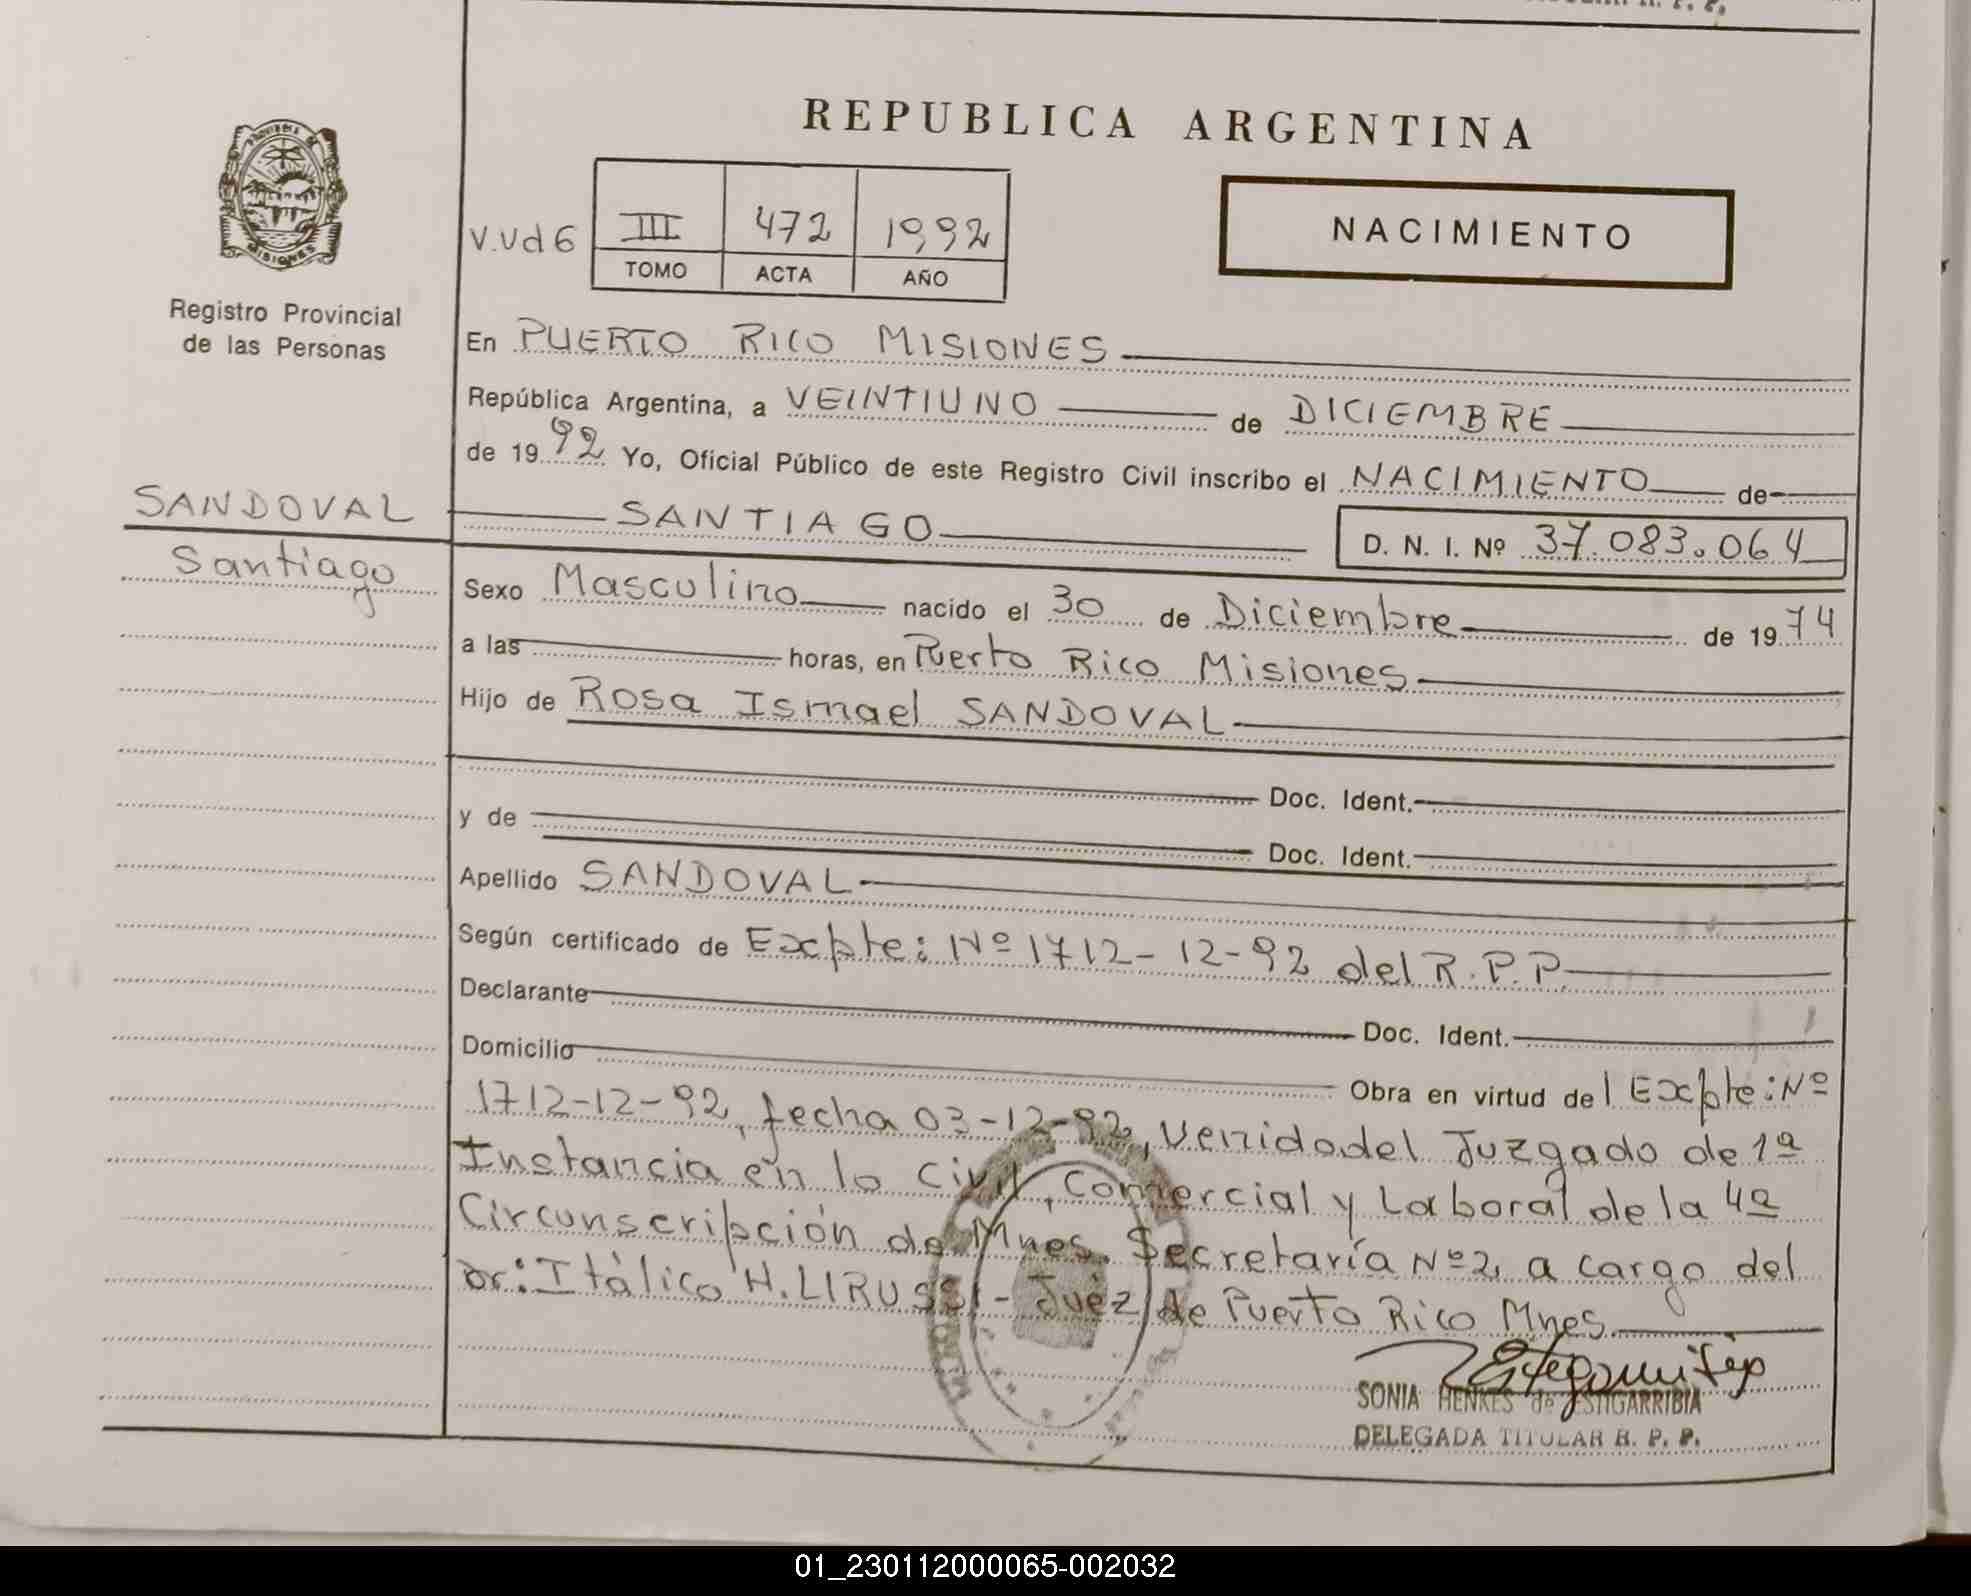 REPUBLICA ARGENTINA
PROVINCIA DE
MISIONES
Registro Provincial
de las Personas
III 472 1992
TOMO ACTA AÑO
NACIMIENTO
En PUERTO RICO MISIONES
República Argentina, a VEINTIUNO de DICIEMBRE
de 1992 Yo, Oficial Público de este Registro Civil inscribo el NACIMIENTO de
SANDOVAL
Santiago
SANTIAGO D. N. I. Nº 37.083.064
Sexo Masculino nacido el 30 de Diciembre de 1974
a las horas, en Puerto Rico Misiones
Hijo de Rosa Ismael SANDOVAL
Doc. Ident.
y de Doc. Ident.
Apellido SANDOVAL
Según certificado de Excpte: Nº 1712-12-92 del R.P.P.
Declarante Doc. Ident.
Domicilio Obra en virtud del Excpte: Nº
1712-12-92, fecha 03-12-92, venido del Juzgado de 1ª
Instancia en lo Civil, Comercial y Laboral de la 4ª
Circunscripción de Mnes. Secretaría Nº 2, a cargo del
Dr: Itálico H. LIRUSSI - Juez de Puerto Rico Mnes.
SONIA HENKES de ESTIGARRIBIA
DELEGADA TITULAR R. P. P.
01_230112000065-002032